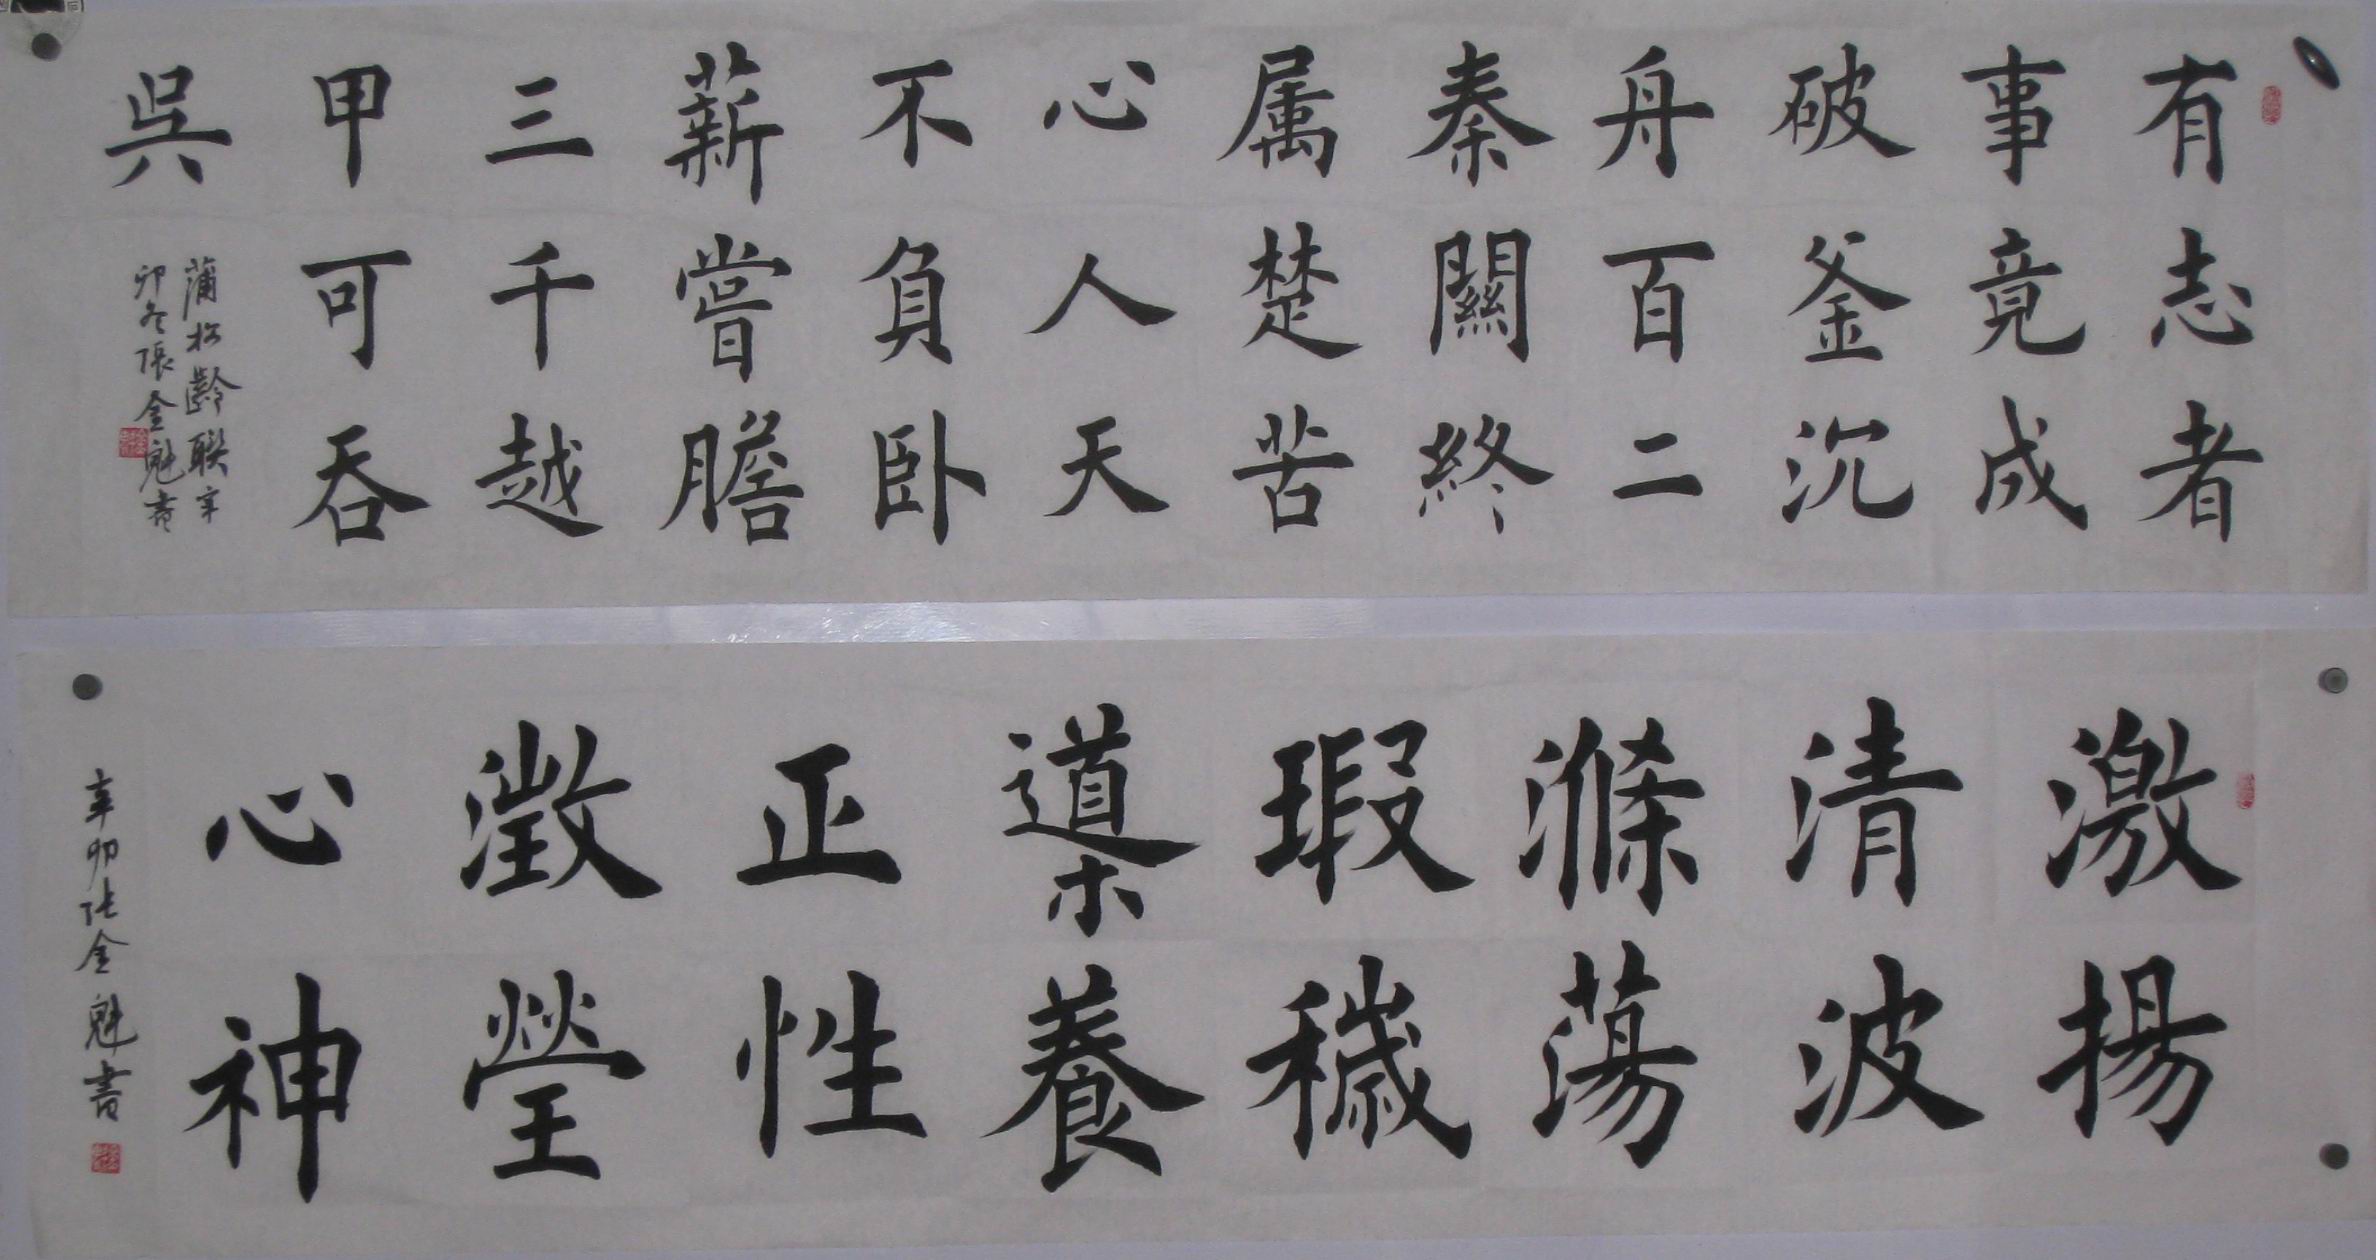 有志者
事竟成
破釜沉
舟百二
秦關終
属楚苦
心人天
不負卧
薪嘗膽
三千越
甲可吞
吳
蒲松齡聯辛
卯冬張金魁書
激揚
清波
滌蕩
瑕穢
導養
正性
澂瑩
心神
辛卯张金魁書